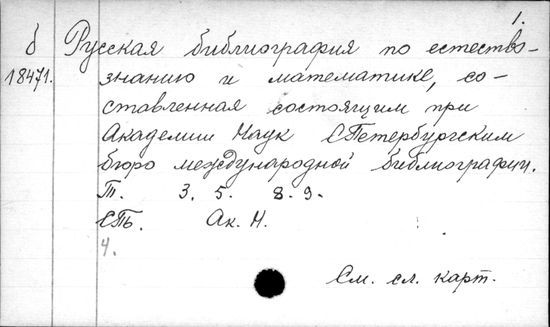 1.
б Русская библиография по естество-
18471. знанию и математике, со-
ставленная состоящим при
Академии Наук СПетербургским
бюро международной библиографии.
Т. 3. 5. 8. 9.
СПб. Ак. Н.
4.
См. сл. карт.